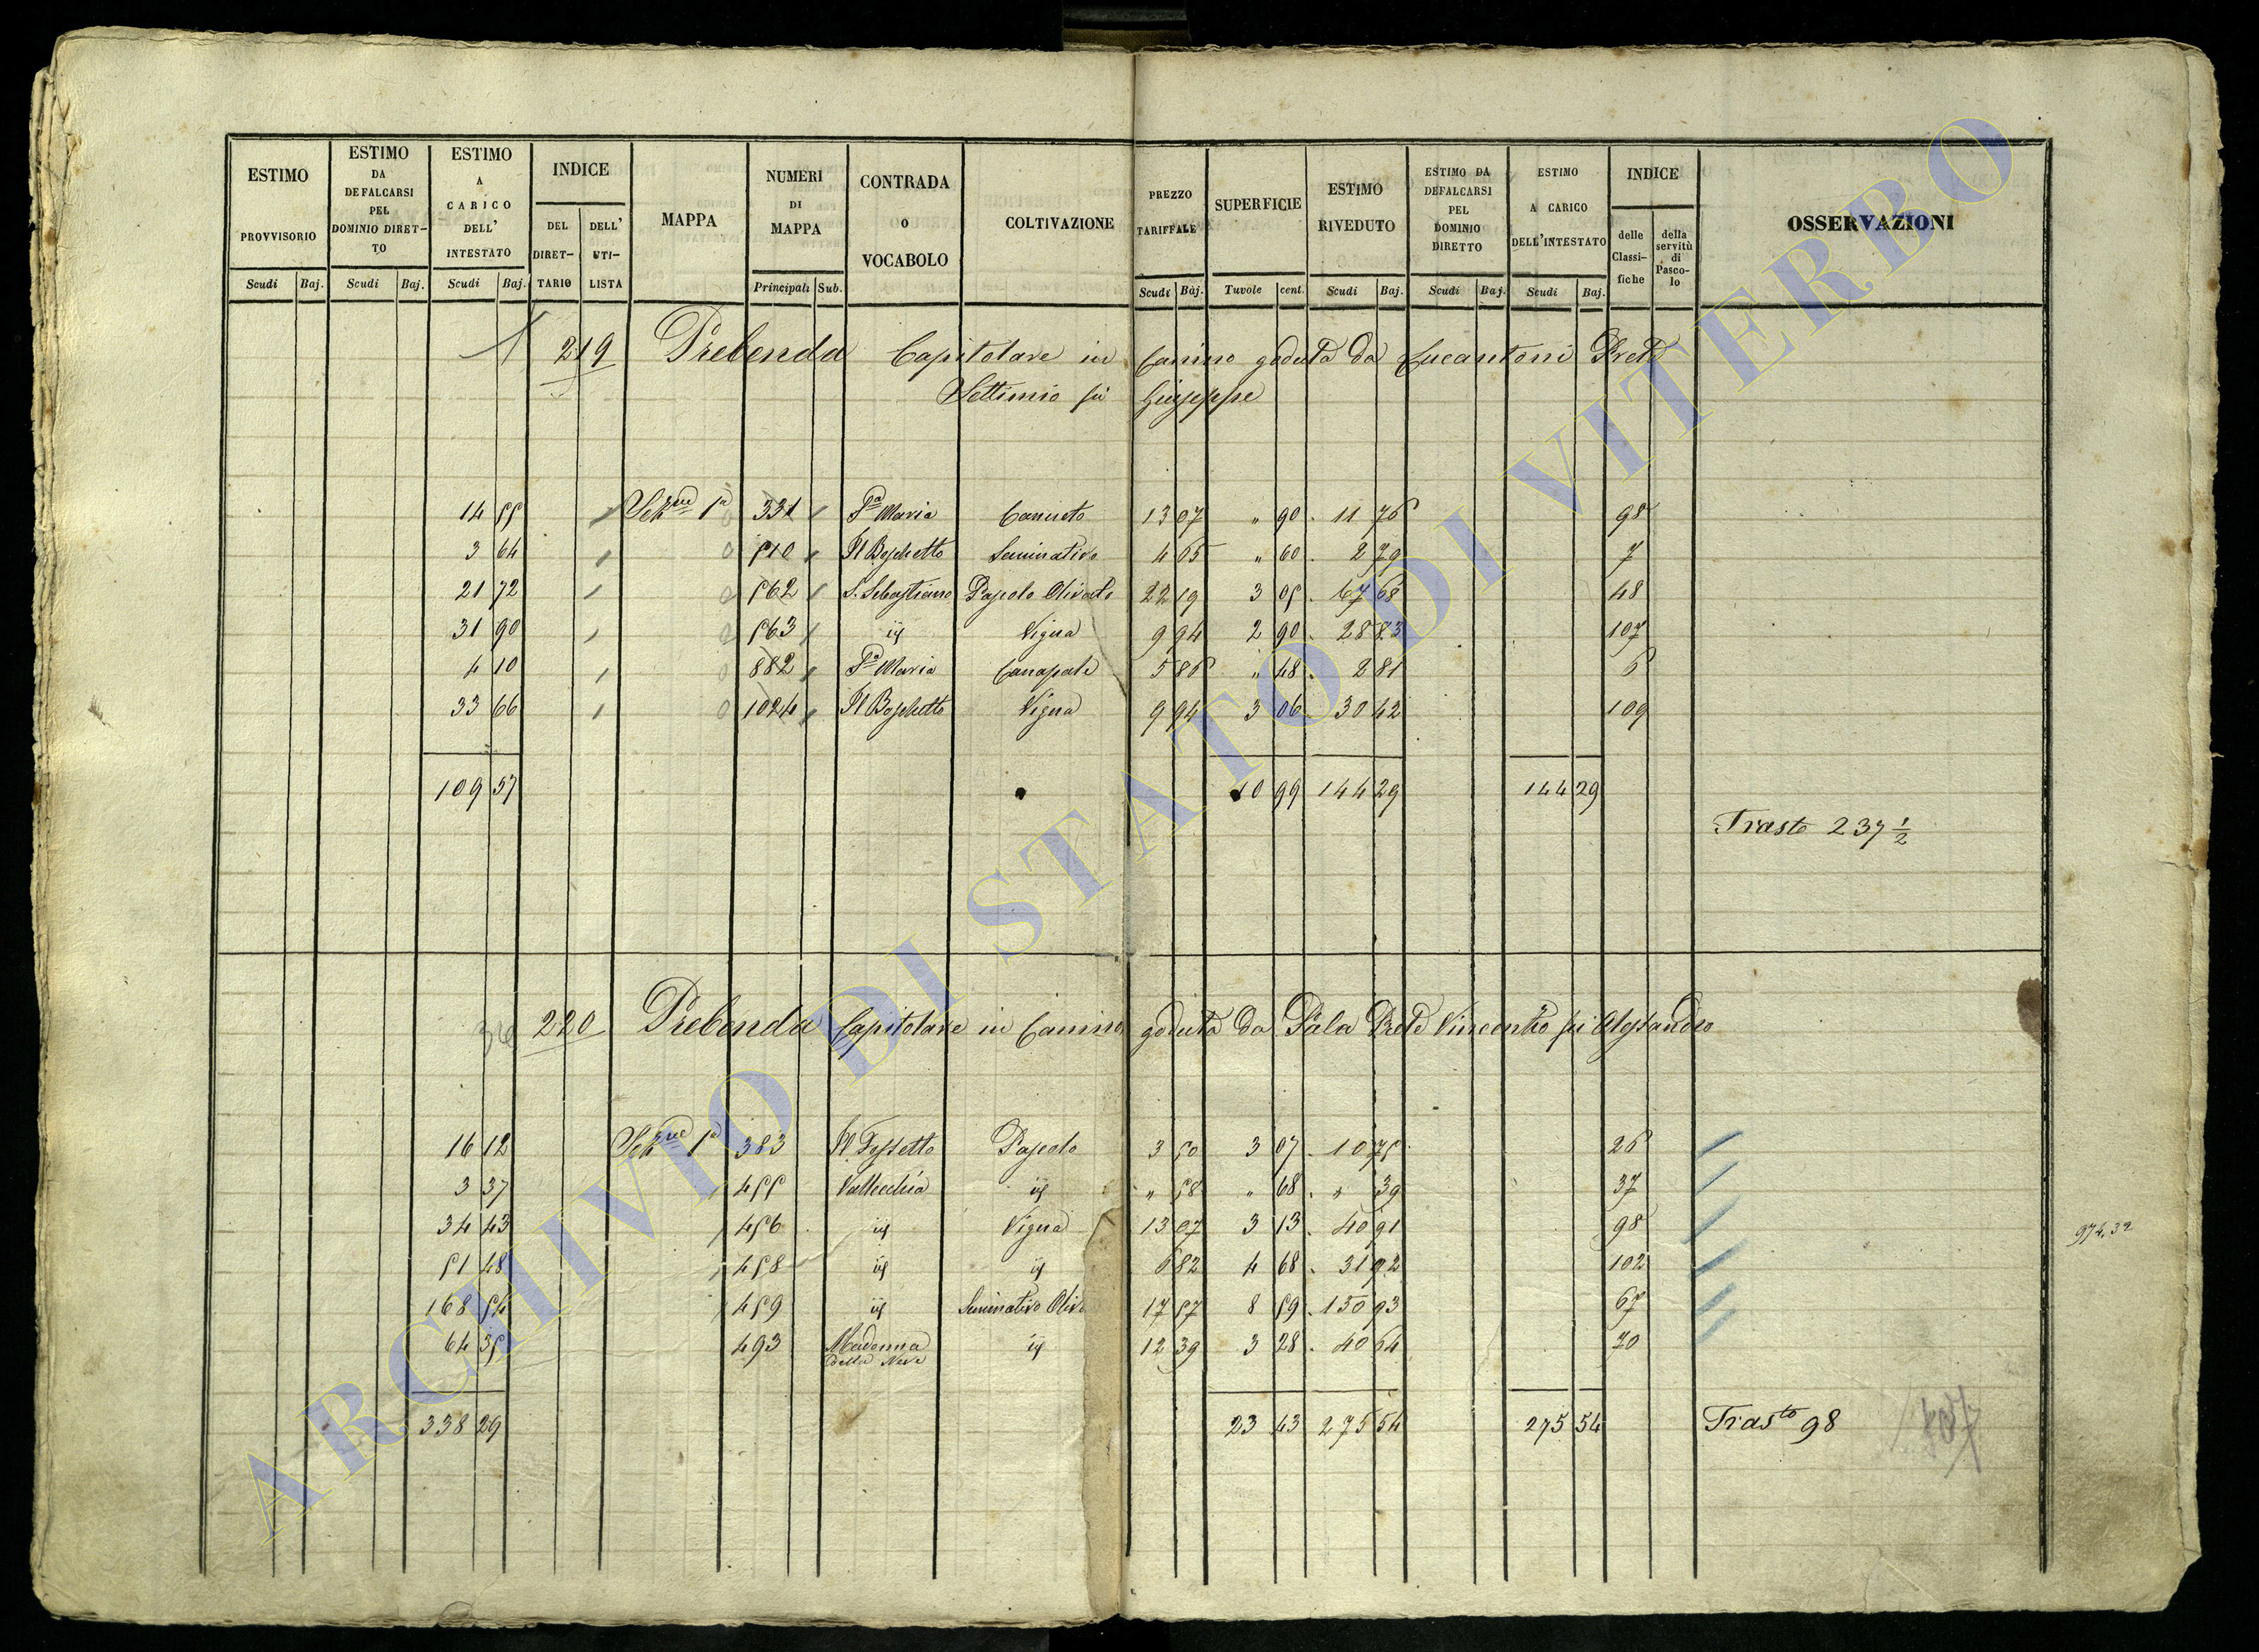 ESTIMO PROVVISORIO
Scudi Baj.
ESTIMO DA DEFALCARSI PEL DOMINIO DIRET-TO
Scudi Baj.
ESTIMO A CARICO DELL' INTESTATO
Scudi Baj.
INDICE
DEL DIRET-TARIO
DELL' UTI-LISTA
MAPPA
NUMERI DI MAPPA
Principali Sub.
CONTRADA o VOCABOLO
COLTIVAZIONE
PREZZO TARIFFALE
Scudi Baj.
SUPERFICIE
Tavole cent.
ESTIMO RIVEDUTO
Scudi Baj.
ESTIMO DA DEFALCARSI PEL DOMINIO DIRETTO
Scudi Baj.
ESTIMO A CARICO DELL'INTESTATO
Scudi Baj.
INDICE
delle Classi-fiche
della servitù di Pasco-lo
OSSERVAZIONI
219 Prebenda Capitolare in Canino goduta da Lucantoni Prete
Settimio fù Giuseppe
14 55 Sezne 1a 331 Sa Maria Canneto 13 07 " 90 11 76 98
3 64 510 Il Boschetto Seminativo 4 65 " 60 2 79 7
21 72 562 S. Sebastiano Pascolo Olivato 22 19 3 05 67 68 48
31 90 563 id Vigna 9 94 2 90 28 83 107
4 10 882 Sa Maria Canapule 5 86 " 48 2 81 6
33 66 1024 Il Boschetto Vigna 9 94 3 06 30 42 109
109 57 10 99 144 29 144 29
Trasto 237 1/2
220 Prebenda Capitolare in Canino goduta da Pala Prete Vincenzo fù Alessandro
16 12 Sezne 1a 383 Il Fossetto Pascolo 3 50 3 07 10 75 26
3 37 455 Vallecchia id " 58 " 68 " 39 37
34 43 456 id Vigna 13 07 3 13 40 91 98
51 48 458 id id 6 82 4 68 31 92 102
168 54 459 id Seminativo Oliv 17 57 8 59 150 93 67
64 35 493 Madonna della Neve id 12 39 3 28 40 64 70
974,32
338 29 23 43 275 54 275 54 Trasto 98
407
ARCHIVIO DI STATO DI VITERBO